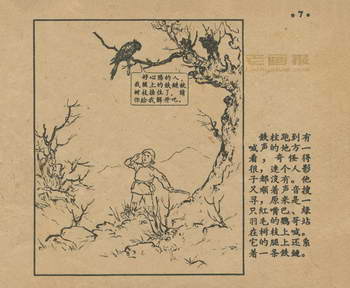 •7•
好心腸的人，
我腿上的鉄鏈被
树枝挂住了，請
你給我解开吧。
鉄柱跑到有
喊声的地方一
看，奇怪得
很，連个人影
子都没有。他
又順着声音搜
寻，原来是一
只紅嘴巴、綠
羽毛的鸚哥站
在树枝上喊，
它的腿上还
着一条鉄鏈
老画报